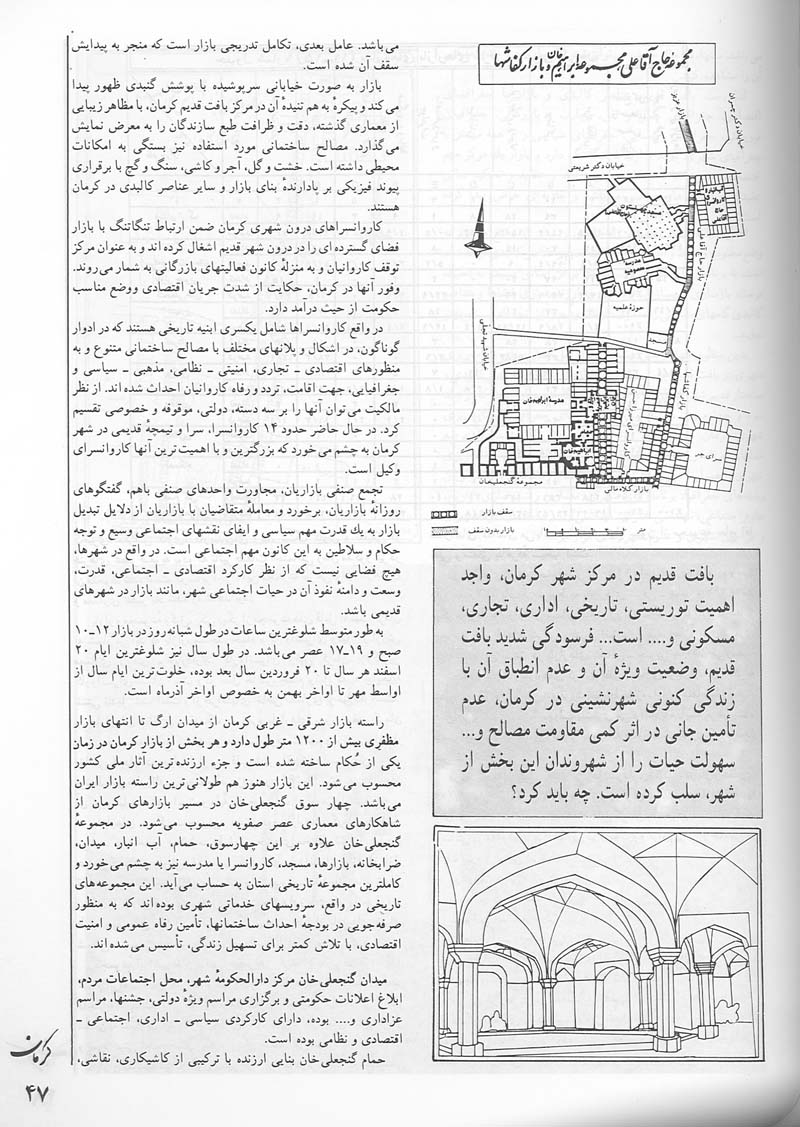 می‌باشد. عامل بعدی، تکامل تدریجی بازار است که منجر به پیدایش
سقف آن شده است.
بازار به صورت خیابانی سرپوشیده با پوشش گنبدی ظهور پیدا
می‌کند و پیکرهٔ به هم تنیدهٔ آن در مرکز بافت قدیم کرمان، با مظاهر زیبایی
از معماری گذشته، دقت و ظرافت طبع سازندگان را به معرض نمایش
می‌گذارد. مصالح ساختمانی مورد استفاده نیز بستگی به امکانات
محیطی داشته است. خشت و گل، آجر و کاشی، سنگ و گچ با برقراری
پیوند فیزیکی بر پادارندهٔ بنای بازار و سایر عناصر کالبدی در کرمان
هستند.
کاروانسراهای درون شهری کرمان ضمن ارتباط تنگاتنگ با بازار
فضای گسترده ای را در درون شهر قدیم اشغال کرده اند و به عنوان مرکز
توقف کاروانیان و به منزلهٔ کانون فعالیتهای بازرگانی به شمار می‌روند.
وفور آنها در کرمان، حکایت از شدت جریان اقتصادی و وضع مناسب
حکومت از حیث درآمد دارد.
در واقع کاروانسراها شامل یکسری ابنیه تاریخی هستند که در ادوار
گوناگون، در اشکال و پلانهای مختلف با مصالح ساختمانی متنوع و به
منظورهای اقتصادی ـ تجاری، امنیتی ـ نظامی، مذهبی ـ سیاسی و
جغرافیایی، جهت اقامت، تردد و رفاه کاروانیان احداث شده اند. از نظر
مالکیت می‌توان آنها را بر سه دسته، دولتی، موقوفه و خصوصی تقسیم
کرد. در حال حاضر حدود ۱۴ کاروانسرا، سرا و تیمچهٔ قدیمی در شهر
کرمان به چشم می‌خورد که بزرگترین و با اهمیت ترین آنها کاروانسرای
وکیل است.
تجمع صنفی بازاریان، مجاورت واحدهای صنفی باهم، گفتگوهای
روزانهٔ بازاریان، برخورد و معاملهٔ متقاضیان با بازاریان از دلایل تبدیل
بازار به یك قدرت مهم سیاسی و ایفای نقشهای اجتماعی وسیع و توجه
حکام و سلاطین به این کانون مهم اجتماعی است. در واقع در شهرها،
هیچ فضایی نیست که از نظر کارکرد اقتصادی ـ اجتماعی، قدرت،
وسعت و دامنهٔ نفوذ آن در حیات اجتماعی شهر، مانند بازار در شهرهای
قدیمی باشد.
به طور متوسط شلوغترین ساعات در طول شبانه روز در بازار ۱۲ـ۱۰
صبح و ۱۹ـ۱۷ عصر می‌باشد. در طول سال نیز شلوغترین ایام ۲۰
اسفند هر سال تا ۲۰ فروردین سال بعد بوده، خلوت ترین ایام سال از
اواسط مهر تا اواخر بهمن به خصوص اواخر آذرماه است.
راسته بازار شرقی ـ غربی کرمان از میدان ارگ تا انتهای بازار
مظفری بیش از ۱۲۰۰ متر طول دارد و هر بخش از بازار کرمان در زمان
یکی از حُکام ساخته شده است و جزء ارزنده ترین آثار ملی کشور
محسوب می‌شود. این بازار هنوز هم طولانی ترین راسته بازار ایران
می‌باشد. چهار سوق گنجعلی خان در مسیر بازارهای کرمان از
شاهکارهای معماری عصر صفویه محسوب می‌شود. در مجموعهٔ
گنجعلی خان علاوه بر این چهارسوق، حمام، آب انبار، میدان،
ضرابخانه، بازارها، مسجد، کاروانسرا یا مدرسه نیز به چشم می‌خورد و
کاملترین مجموعهٔ تاریخی استان به حساب می‌آید. این مجموعه های
تاریخی در واقع، سرویسهای خدماتی شهری بوده اند که به منظور
صرفه جویی در بودجهٔ احداث ساختمانها، تأمین رفاه عمومی و امنیت
اقتصادی، با تلاش کمتر برای تسهیل زندگی، تأسیس می‌شده اند.
میدان گنجعلی خان مرکز دارالحکومهٔ شهر، محل اجتماعات مردم،
ابلاغ اعلانات حکومتی و برگزاری مراسم ویژهٔ دولتی، جشنها، مراسم
عزاداری و.... بوده، دارای کارکردی سیاسی ـ اداری، اجتماعی ـ
اقتصادی و نظامی بوده است.
حمام گنجعلی خان بنایی ارزنده با ترکیبی از کاشیکاری، نقاشی،
مجموعه حاج آقا علی مجموعه ابراهیم خان و بازار کفاشها
خیابان دکتر چمران
بازار عزیز
خیابان دکتر شریعتی
بازار حاج آقا علی
مدرسه معصومیه
حوزهٔ علمیه
مسجد
خیابان شهید تجلی
مدرسهٔ ابراهیم خان
ابراهیم خان
بازار کفاشها
سرای جر
مجموعهٔ گنجعلیخان
بازار کلاه مالی
سقف بازار
بازار بدون سقف
متر
بافت قدیم در مرکز شهر کرمان، واجد
اهمیت توریستی، تاریخی، اداری، تجاری،
مسکونی و.... است... فرسودگی شدید بافت
قدیم، وضعیت ویژهٔ آن و عدم انطباق آن با
زندگی کنونی شهرنشینی در کرمان، عدم
تأمین جانی در اثر کمی مقاومت مصالح و...
سهولت حیات را از شهروندان این بخش از
شهر، سلب کرده است. چه باید کرد؟
کرمان
۴۷